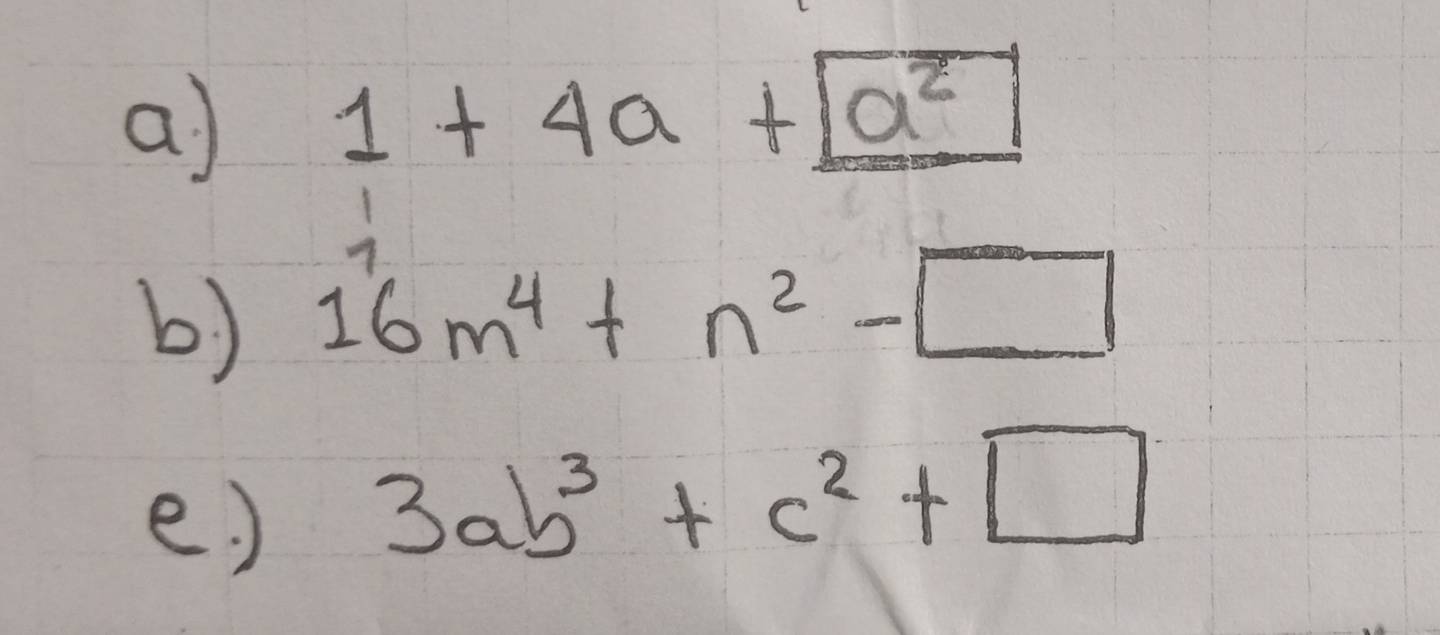 a.) 1 + 4a + a²
1
b.) 16m⁴ + n² -
e.) 3ab³ + c² +